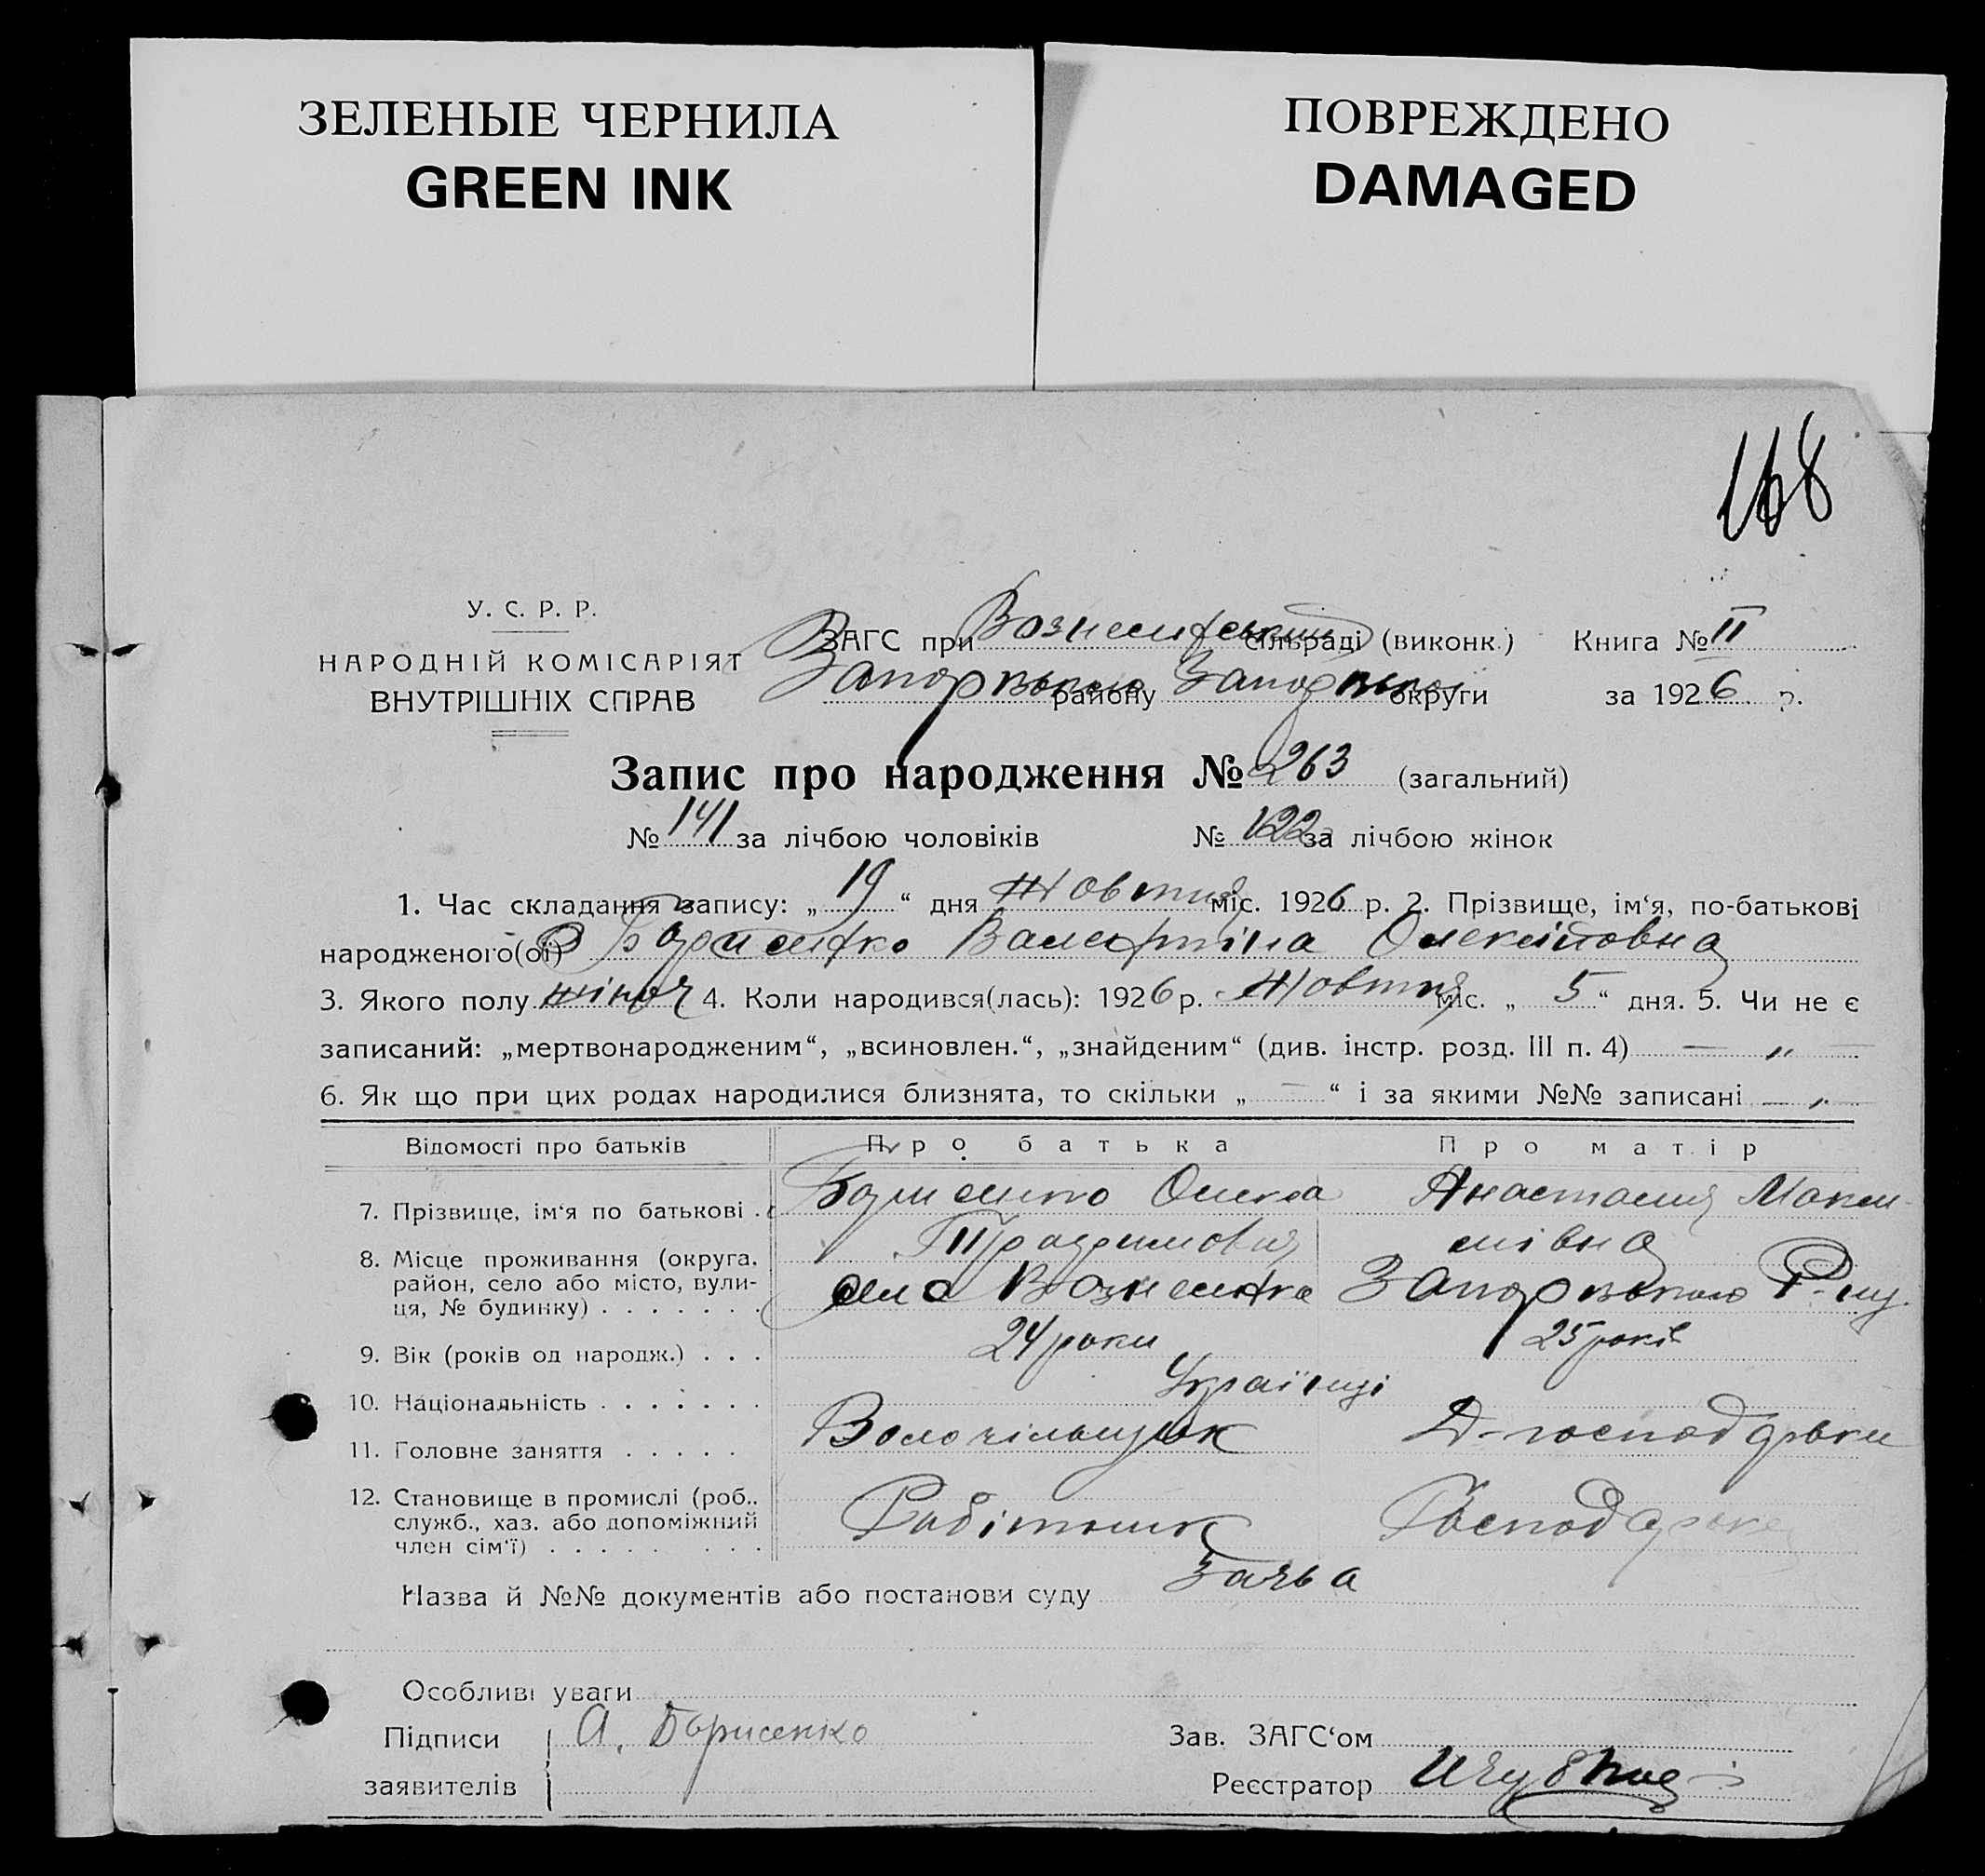 ЗЕЛЕНЫЕ ЧЕРНИЛА
GREEN INK
ПОВРЕЖДЕНО
DAMAGED
168
У. С. Р. Р.
НАРОДНІЙ КОМІСАРІЯТ
ВНУТРІШНІХ СПРАВ
ЗАГС при Вознесенській сільраді (виконк.) Книга № II
Запорізького району Запорізької округи за 1926 р.
Запис про народження № 263 (загальний)
№ 141 за лічбою чоловіків № 122 за лічбою жінок
1. Час складання запису: „19“ дня Жовтня міс. 1926 р. 2. Прізвище, ім‘я, по-батькові
народженого(ої) Борисенко Валентіна Олексіївна
3. Якого полу жіноч 4. Коли народився(лась): 1926 р. Жовтня міс. „5“ дня. 5. Чи не є
записаний: „мертвонародженим“, „всиновлен.“, „знайденим“ (див. інстр. розд. III п. 4) — „ —
6. Як що при цих родах народилися близнята, то скільки „ — “ і за якими №№ записані — „ —
Відомості про батьків Про батька Про матір
7. Прізвище, ім‘я по батькові . Борисенко Олекса Анастасия Макси-
мівна
8. Місце проживання (округа, район, село або місто, вули-ця, № будинку) . . . . . . . село Вознесенка Запорізького Р-ну
9. Вік (років од народж.) . . . 24 роки 25 років
10. Національність . . . . . . . Українці
11. Головне заняття . . . . . Д-господарки
12. Становище в промислі (роб., служб., хаз. або допоміжний член сім‘ї) . . . . . . . . . Робітник Господарка
Назва й №№ документів або постанови суду Заява
Особливі уваги
Підписи А. Борисенко Зав. ЗАГС‘ом
заявителів Реєстратор